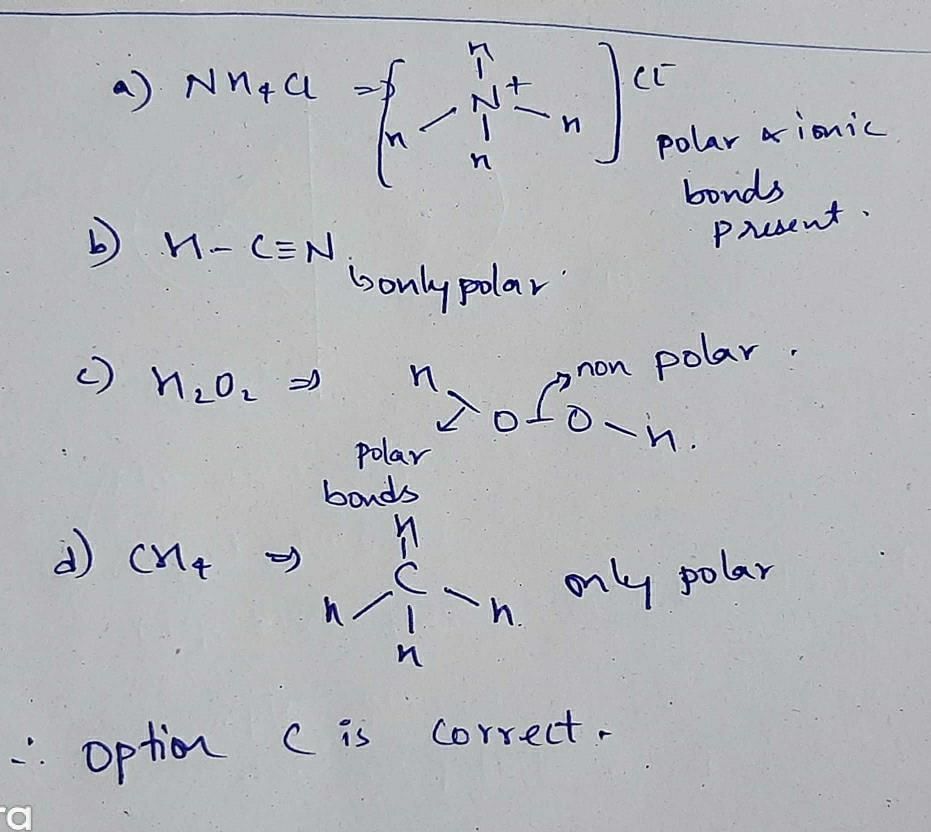 a) NH4Cl ⇒ [ H
H – N+ – H ] Cl-
H
polar & ionic
bonds
present.
b) H – C ≡ N
↳ only polar
c) H2O2 ⇒ H O – O – H.
non polar.
polar
bonds
d) CH4 ⇒ H
H C H.
H
only polar
∴ option C is correct.
ra